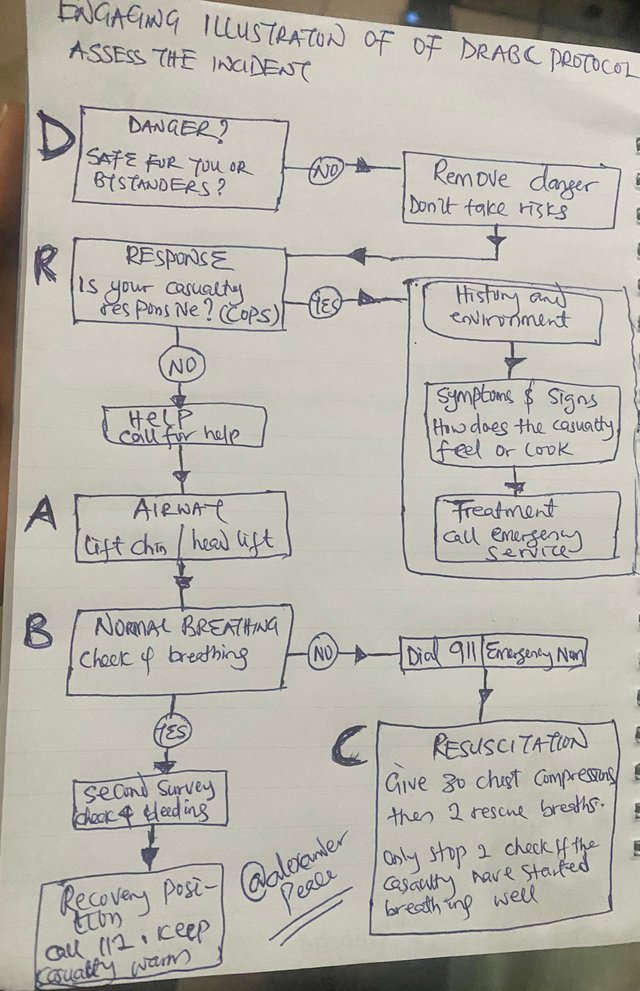 ENGAGING ILLUSTRATON OF OF DRABC PROTOCOL
ASSESS THE INCIDENT
D
DANGER?
SAFE FUR YOU OR
BYSTANDERS?
NO
Remove danger
Don't take risks
R
RESPONSE
Is your casualty
responsive? (COPS)
YES
History and
environment
NO
Symptoms & signs
How does the casualty
feel or look
HELP
call for help
Treatment
call emergency
service
A
AIRWAY
lift chin / head lift
B
NORMAL BREATHING
check 4 breathing
NO
Dial 911 Emergency Num
YES
C
RESUSCITATION
Give 30 chest compressions
then 2 rescue breaths.
only stop 2 check if the
casualty have started
breathing well
second survey
check 4 bleeding
Recovery posi-
tion
call 112. keep
casualty warm
@alexander
Peace